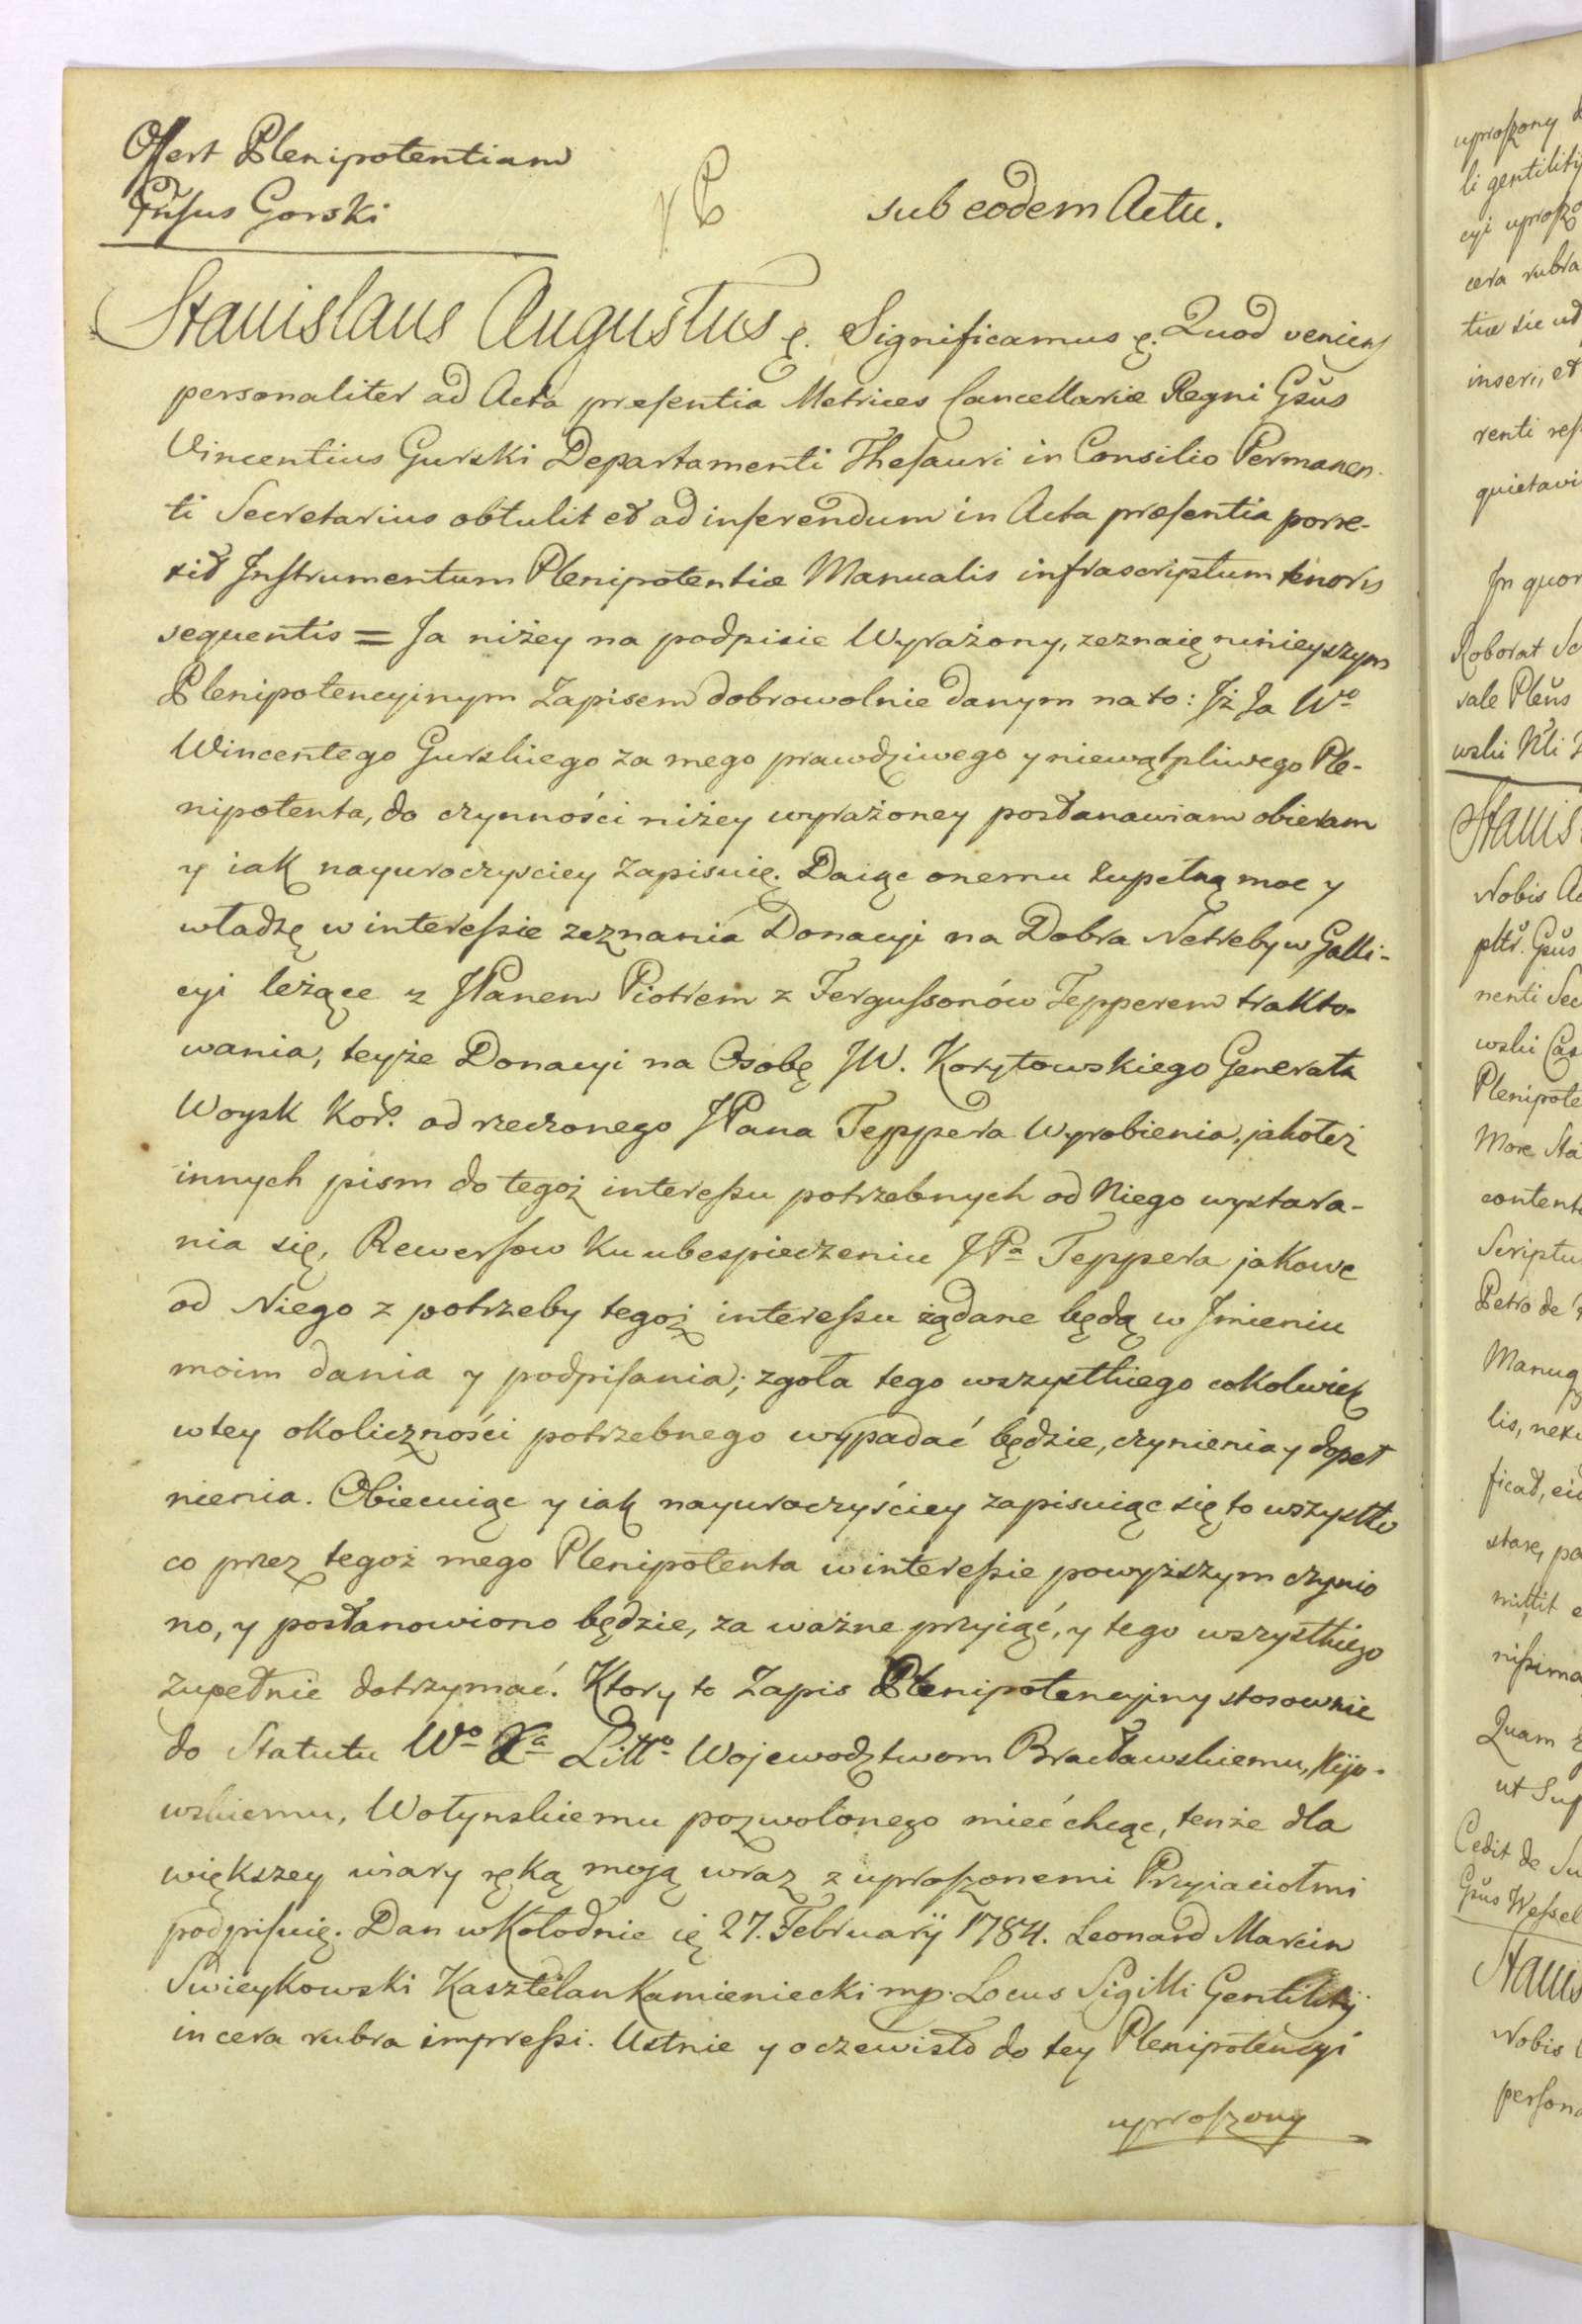 Offert Plenipotentiam
Gnsus Gorski
sub eodem Actu.
Stanislaus Augustus &. Significamus &. Quod veniens
personaliter ad Acta præsentia Metrices Cancellariæ Regni Gsus
Vincentius Gurski Departamenti Thesauri in Consilio Permanen-
ti Secretarius obtulit et ad inserendum in Acta præsentia porre-
xit Instrumentum Plenipotentiæ Manualis infrascriptum tenoris
sequentis = Ja niżey na podpisie Wyrażony, zeznaię ninieyszym
Plenipotencyinym Zapisem dobrowolnie danym na to: Jż Ja Wo
Wincentego Gurskiego za mego prawdziwego y niewątpliwego Ple-
nipotenta, do czynności niżey wyrażoney postanawiam obieram
y iak nayuroczysciey Zapisuię. Daiąc onemu zupełną moc y
władzę w interessie zeznania Donacyi na Dobra Netreby w Galli-
cyi leżące z JPanem Piotrem z Fergussonów Tepperem trakto-
wania, teyże Donacyi na Osobę JW. Korytowskiego Generała
Woysk Kor. od rzeczonego JPana Teppera Wyrobienia, jakoteż
innych pism do tegoż interessu potrzebnych od Niego wystara-
nia się, Rewersow ku ubespieczeniu JPa Teppera jakowe
od Niego z potrzeby tegoż interessu żądane będą w Jmieniu
moim dania y podpisania; zgoła tego wszystkiego cokolwiek
w tey okoliczności potrzebnego wypadać będzie, czynienia y dopeł
nienia. Obiecuiąc y iak nayuroczyściey zapisuiąc się to wszystko
co przez tegoż mego Plenipotenta w interessie powyższym czynio
no, y postanowiono będzie, za ważne przyiąć, y tego wszystkiego
zupełnie dotrzymać. Ktory to Zapis Plenipotencyiny stosownie
do Statutu Wo Xa Litto Wojewodztwom Bracławskiemu, Kijo-
wskiemu, Wołynskiemu pozwolonego mieć chcąc, tenże dla
większey wiary ręką moją wraz z uproszonemi Przyiaciołmi
podpisuię. Dan w Kołodnie ię 27. Februarij 1784. Leonard Marcin
Swieykowski Kasztelan Kamieniecki mp. Locus Sigilli Gentilitij
in cera rubra impressi. Ustnie y oczewisto do tey Plenipotencyi
uproszony
uproszony
li gentilitij
cyi uproszo
cera rubra
tiæ sic ut
inseri, et
renti res
quietavi
In quor
Roborat Sc
rale Pleus
wski Nti
Stanis
Nobis Ac
pltr. Gsus
nenti Sec
wski Cas
Plenipote
More Sta
contente
Scriptu
Petro de
Manuq
lis, nex
ficat, eid
stare, pa
mittit e
nissima
Quam
ut Sup
Cedit de Su
Gsus Wessel
Stanis
Nobis
persona